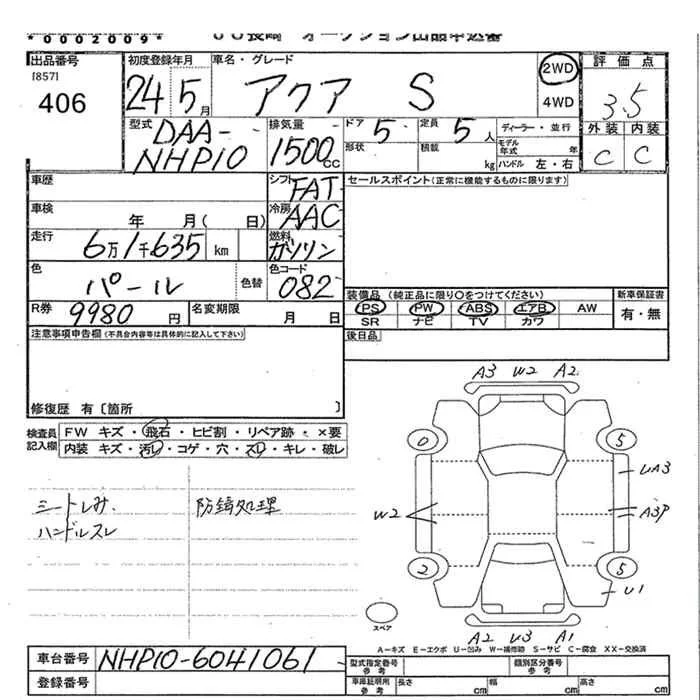 *0002009*
出品番号
[857]
406
初度登録年月
24 5月
車名・グレード
アクア S
2WD
4WD
評価点
3.5
外装 内装
C C
型式
DAA-
NHP10
排気量
1500cc
ドア 5
定員 5人
形状
積載 kg
ディーラー・並行
モデル年式 年
ハンドル 左・右
車歴
シフト FAT
車検 年 月( 日)
冷房 AAC
走行 6万1千635 km
燃料 ガソリン
色 パール 色替
色コード 082
R券 9980円
名変期限 月 日
セールスポイント(正常に機能するものに限ります)
装備品(純正品に限り〇をつけてください)
新車保証書
PS PW ABS エアB AW
SR ナビ TV カワ
有・無
注意事項申告欄(不具合内容等は具体的に記入して下さい)
後日品
修復歴 有〔箇所 〕
検査員記入欄
FW キズ・飛石・ヒビ割・リペア跡・×要
内装 キズ・汚レ・コゲ・穴・スレ・キレ・破レ
シートしみ
ハンドルスレ
防錆処理
A3 W2 A2
0 5
UA3
W2
A3P
2 5
U1
スペア
A2 U3 A1
A-キズ E-エクボ U-凹み W-補修跡 S-サビ C-腐食 XX-交換済
車台番号 NHP10-6041061
登録番号
型式指定番号 参考
類別区分番号 参考
車庫証明用 参考
長さ cm 幅 cm 高さ cm